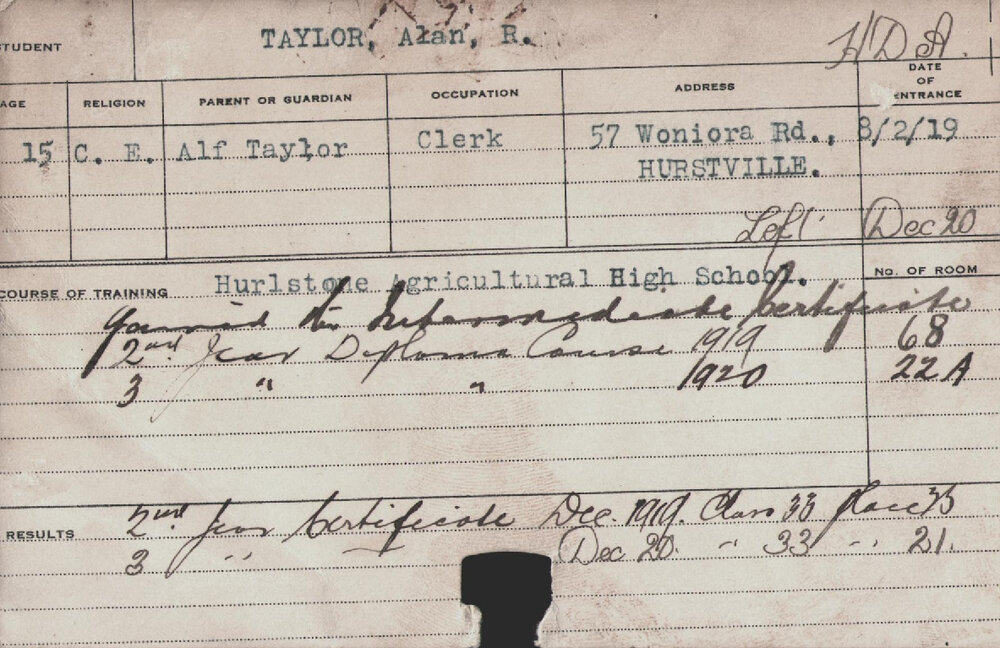 STUDENT TAYLOR, Alan, R. H D A.
AGE RELIGION PARENT OR GUARDIAN OCCUPATION ADDRESS DATE OF ENTRANCE
15 C. E. Alf Taylor Clerk 57 Woniora Rd., 8/2/19
HURSTVILLE.
Left Dec 20
COURSE OF TRAINING Hurlstone Agricultural High School. No. OF ROOM
Gained the Intermediate Certificate
2nd Year Diploma Course 1919 68
3 " " 1920 22A
RESULTS 2nd Year Certificate Dec. 1919. Class 33 place 33
3 " — Dec 20. " 33 " 21.